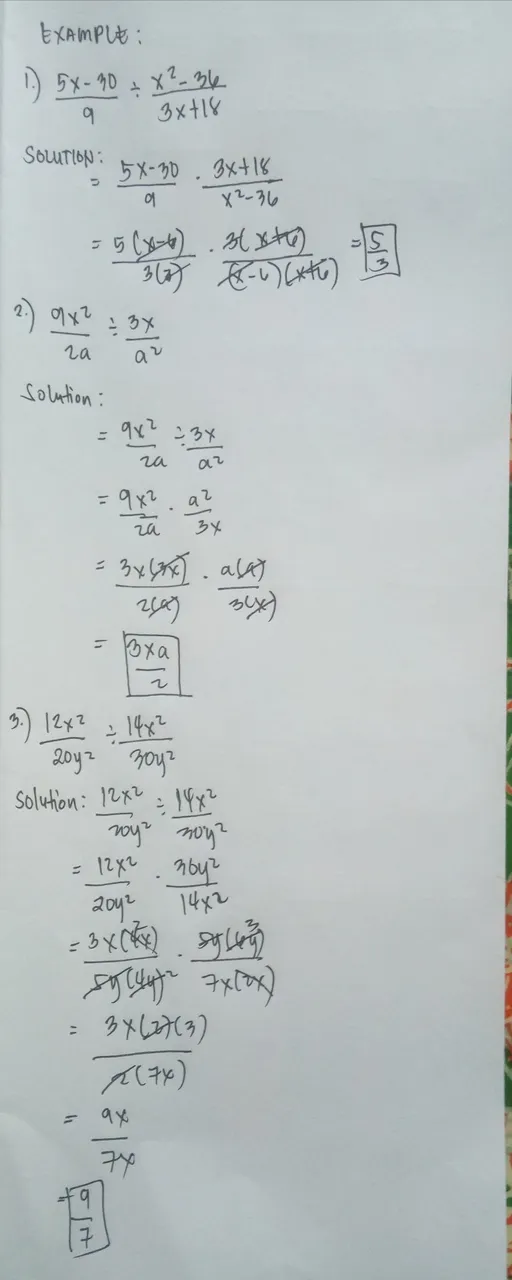 EXAMPLE:
1.) (5x-30)/9 ÷ (x²-36)/(3x+18)
SOLUTION:
= (5x-30)/9 · (3x+18)/(x²-36)
= 5(x-6)/3(3) · 3(x+6)/(x-6)(x+6) = 5/3
2.) 9x²/2a ÷ 3x/a²
Solution:
= 9x²/2a ÷ 3x/a²
= 9x²/2a · a²/3x
= 3x(3x)/2(a) · a(a)/3(x)
= 3xa/2
3.) 12x²/20y² ÷ 14x²/30y²
Solution: 12x²/20y² ÷ 14x²/30y²
= 12x²/20y² · 30y²/14x²
= 3x(4x)²/5y(4y)² · 5y(6y)³/7x(2x)
= 3x(2)(3)/2(7x)
= 9x/7x
= 9/7